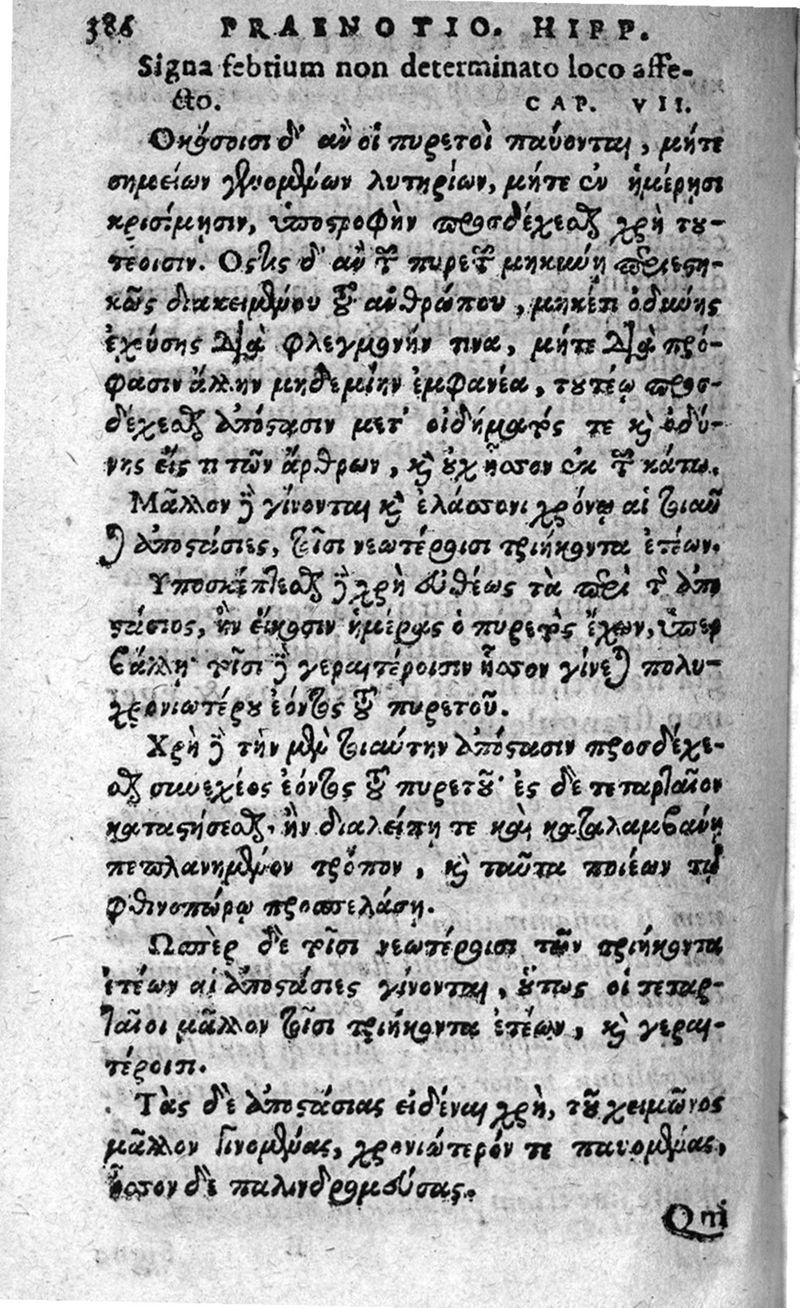 386 PRAENOTIO. HIPP.
Signa febrium non determinato loco affe-
cto. CAP. VII.
Οκόσοισι δ' ἂν οἱ πυρετοὶ παύονται, μήτε
σημείων γενομένων λυτηρίων, μήτε ἐν ἡμέρῃσι
κρισίμῃσιν, ὑποστροφὴν προσδέχεσθαι χρὴ του-
τέοισιν. Οστις δ' ἂν τῶν πυρετῶν μηκύνῃ περιεστη-
κῶς διακειμένου τοῦ ἀνθρώπου, μηκέτι ὀδύνης
ἐχούσης διὰ φλεγμονήν τινα, μήτε διὰ πρό-
φασιν ἄλλην μηδεμίην ἐμφανέα, τουτέῳ προσ-
δέχεσθαι ἀπόστασιν μετ' οἰδήματός τε καὶ ὀδύ-
νης εἴς τι τῶν ἄρθρων, καὶ οὐχ ἧσσον ἐκ τῶν κάτω.
Μᾶλλον δὲ γίνονται καὶ ἐλάσσονι χρόνῳ αἱ τοιαῦ
ται ἀποστάσιες, τοῖσι νεωτέροισι τριήκοντα ἐτέων.
Υποσκέπτεσθαι δὲ χρὴ εὐθέως τὰ περὶ τῆς ἀπο
στάσιος, ἢν εἴκοσιν ἡμέρας ὁ πυρετὸς ἔχων, ὑπερ
βάλλῃ· τοῖσι δὲ γεραιτέροισιν ἧσσον γίνεται πολυ-
χρονιωτέρου ἐόντος τοῦ πυρετοῦ.
Χρὴ δὲ τὴν μὲν τοιαύτην ἀπόστασιν προσδέχε-
σθαι συνεχέος ἐόντος τοῦ πυρετοῦ· ἐς δὲ τεταρταῖον
καταστήσεσθαι, ἢν διαλείπῃ τε καὶ καταλαμβάνῃ
πεπλανημένον τρόπον, καὶ ταῦτα ποιέων τῷ
φθινοπώρῳ προσπελάσῃ.
Ωσπερ δὲ τοῖσι νεωτέροισι τῶν τριήκοντα
ἐτέων αἱ ἀποστάσιες γίνονται, οὕτως οἱ τεταρ-
ταῖοι μᾶλλον τοῖσι τριήκοντα ἐτέων, καὶ γεραι-
τέροισι.
Τὰς δὲ ἀποστάσιας εἰδέναι χρὴ, τοῦ χειμῶνος
μᾶλλον γινομένας, χρονιώτερόν τε παυομένας,
ἧσσον δὲ παλινδρομούσας.
Qui